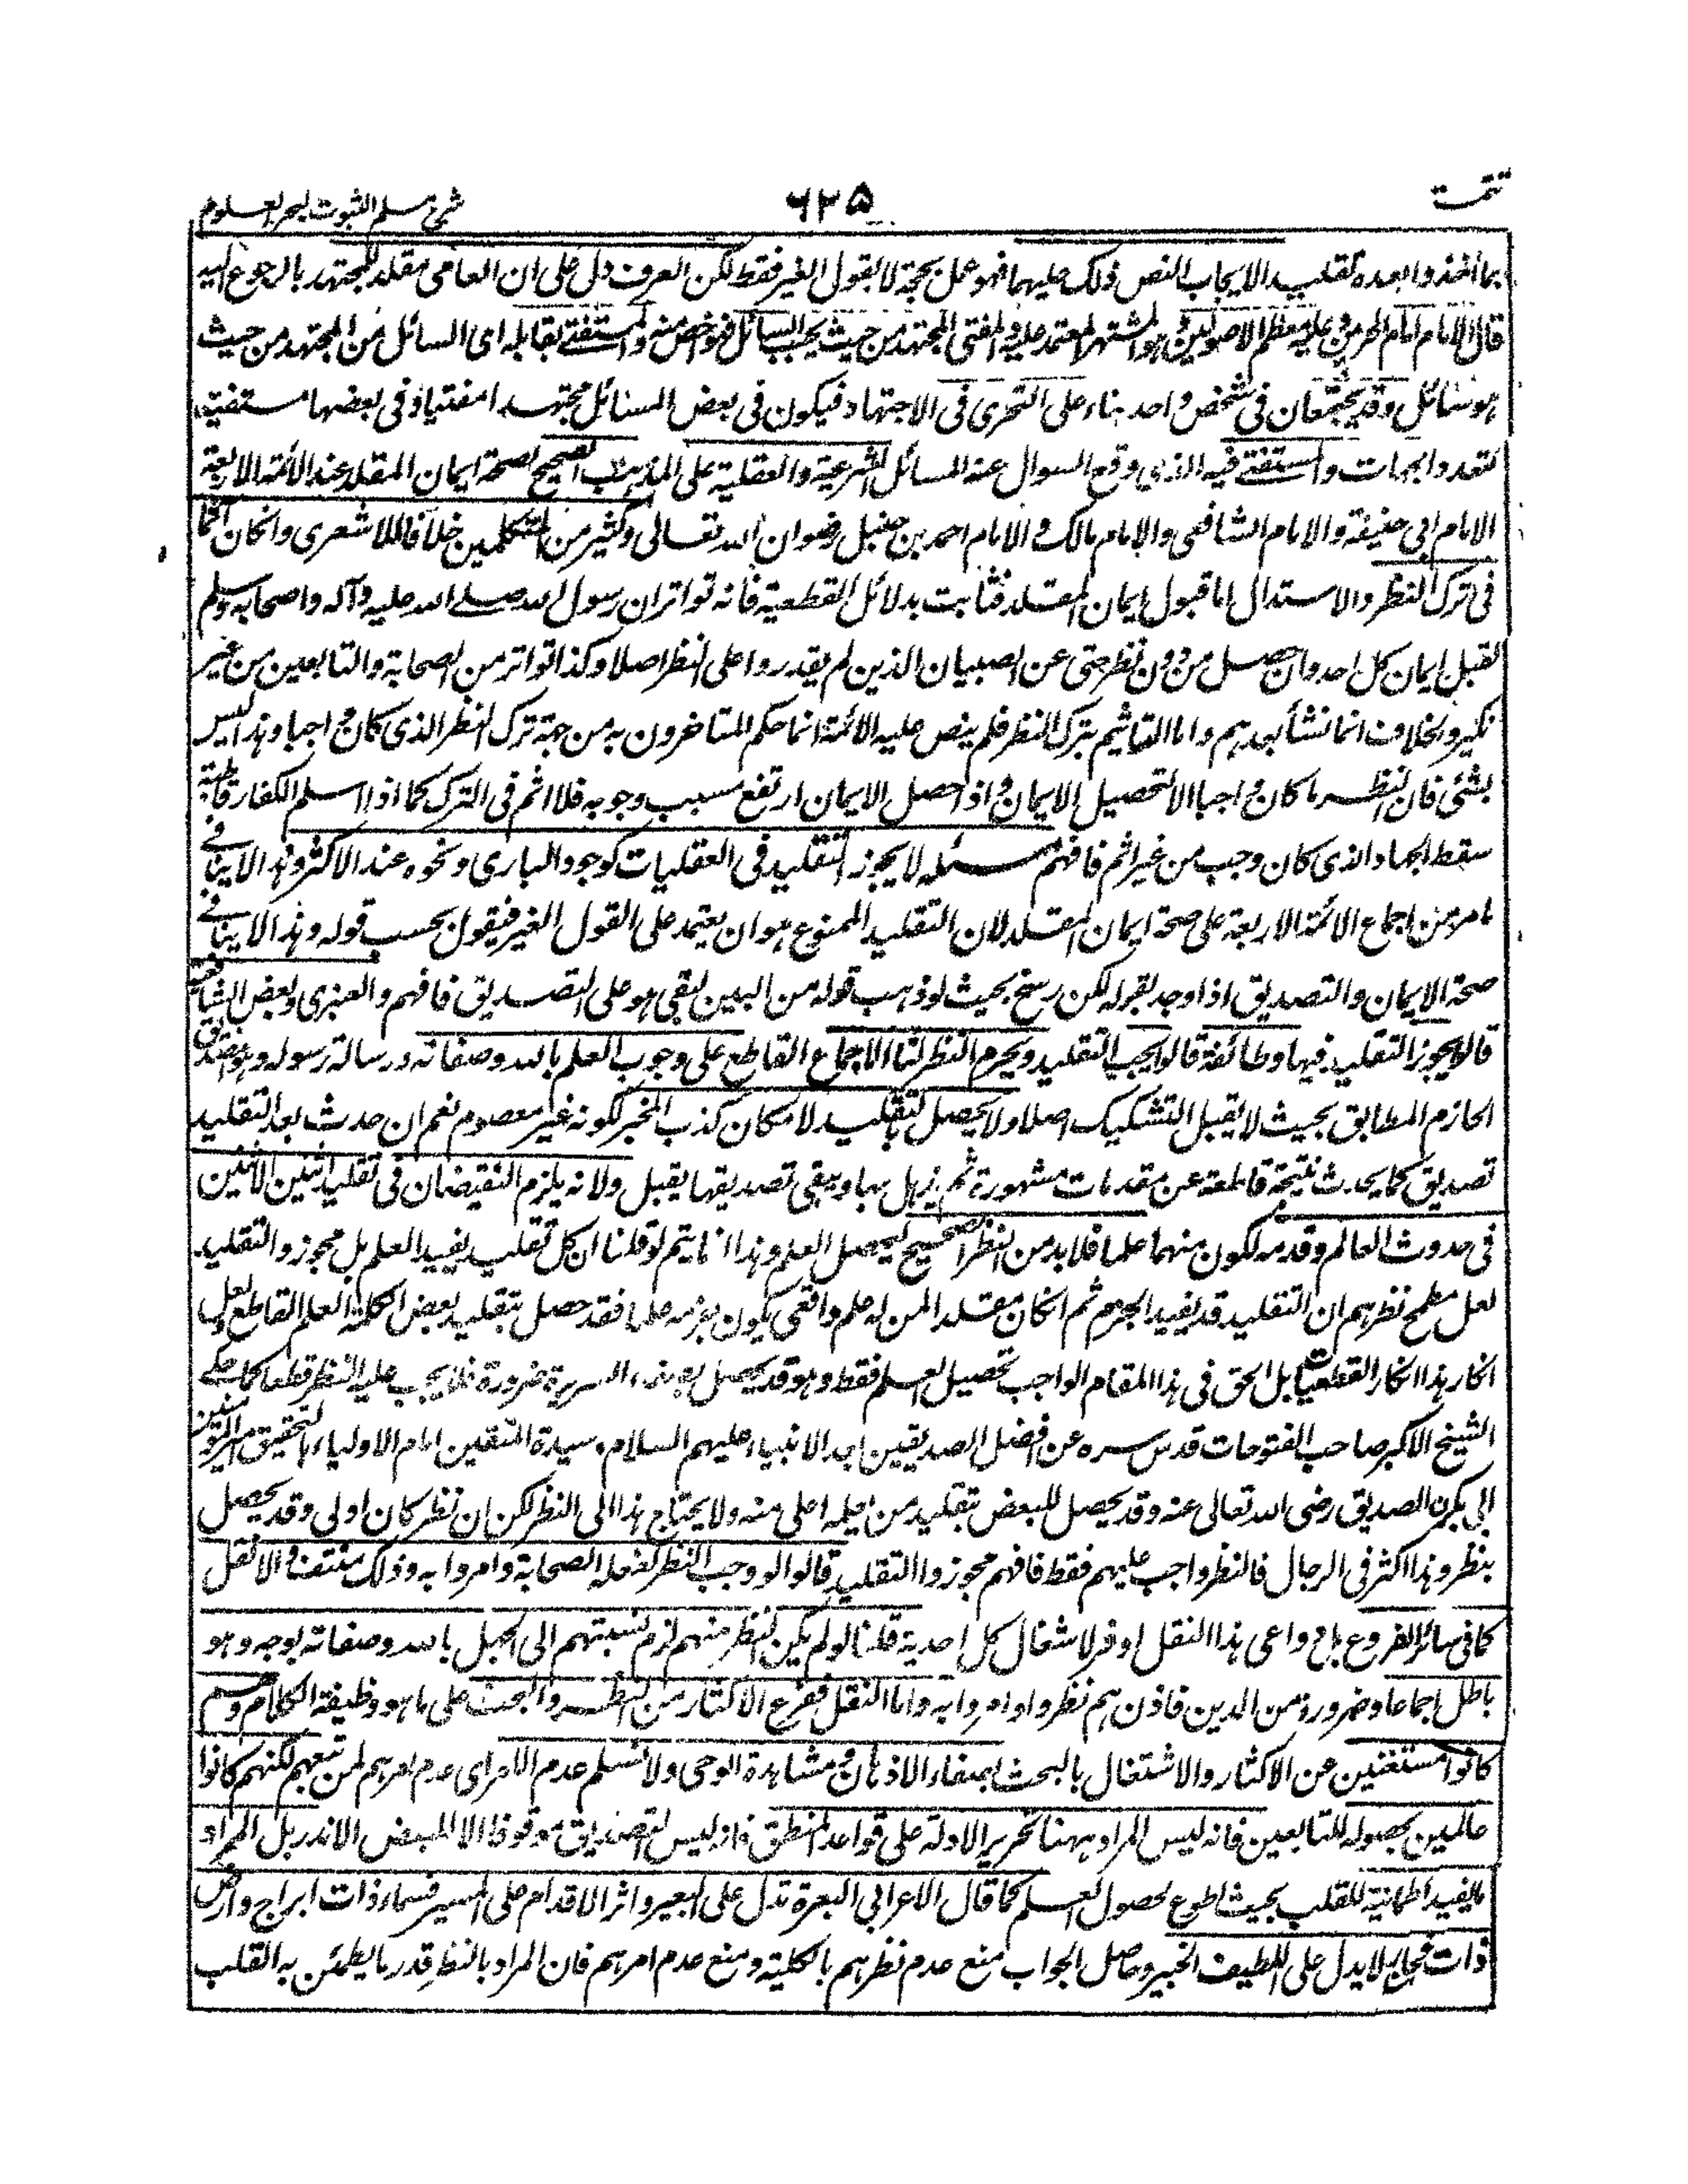 تتمت
٦٢٥
شرح مسلم الثبوت لبحر العلوم
بما اخذوا بعده تقليد الايجاب النص ذلك عليهما فهو عمل بحجة لا بقول الغير فقط لكن العرف دل على ان العامى مقلد للمجتهد بالرجوع اليه
قال الامام امام الحرمين و عليه معظم الاصوليين و هو المشتهر المعتمد عليه و المفتى المجتهد من حيث يجيب السائل فهو اخص منه و المستفتى يقابله اى السائل من المجتهد من حيث
هو سائل و قد يجتمعان فى شخص واحد بناء على التجزى فى الاجتهاد فيكون فى بعض المسائل مجتهدا مفتيا و فى بعضها مستفتيا
لتعدد الجهات و المستفتى فيه الذى وقع السوال عنه المسائل الشرعية و العقلية على المذهب الصحيح لصحة ايمان المقلد عند الائمة الاربعة
الامام ابى حنيفة و الامام الشافعى و الامام مالك و الامام احمد بن حنبل رضوان الله تعالى و كثير من المتكلمين خلافا للاشعرى و انكان آثما
فى ترك النظر و الاستدلال اما قبول ايمان المقلد فثابت بدلائل القطعية فانه تواتر ان رسول الله صلى الله عليه و آله و اصحابه وسلم
لقبل ايمان كل احد و ان حصل من دون نظر حتى عن الصبيان الذين لم يقدروا على النظر اصلا و كذا تواتر من الصحابة و التابعين من غير
نكير و الخلاف انما نشأ بعدهم و اما التاثيم بترك النظر فلم ينص عليه الائمة انما حكم المتاخرون به من جهة ترك النظر الذى كان واجبا و هذا ليس
بشئ فان النظر ما كان واجبا الا لتحصيل الايمان و اذا حصل الايمان ارتفع سبب وجوبه فلا اثم فى الترك كما اذا اسلم الكفار قاطبة
سقط الجهاد الذى كان وجب من غير اثم فافهم مسئله لا يجوز التقليد فى العقليات كوجود البارى و نحوه عند الاكثر و هذا لا ينافى
ما مر من اجماع الائمة الاربعة على صحة ايمان المقلد لان التقليد الممنوع هو ان يعتمد على القول الغير فيقول بحسب قوله و هذا لا ينافى
صحة الايمان و التصديق اذا وجد بقوله لكن رسخ بحيث لو ذهب قوله من البين لبقى هو على التصديق فافهم و العنبرى و بعض الشافعية
قالوا يجوز التقليد فيها و طائفة قالوا يجب التقليد و يحرم النظر لنا الاجماع القاطع على وجوب العلم بالله و صفاته و رسالة رسوله و هو التصديق
الجازم المطابق بحيث لا يقبل التشكيك اصلا و لا يحصل بالتقليد لامكان كذب المخبر لكونه غير معصوم نعم ان حدث بعد التقليد
تصديق كما يحدث نتيجة قاطعة عن مقدمات مشهورة ثم يذهل بها و يبقى تصديقها يقبل و لانه يلزم النقيضان فى تقليد اثنين لاثنين
فى حدوث العالم و قدمه لكون منهما علما فلا بد من النظر الصحيح ليحصل العلم و هذا انما يتم لو قلنا ان كل تقليد يفيد العلم بل مجوزو التقليد
لعل مطمح نظرهم ان التقليد قد يفيد الجزم ثم انكان مقلدا لمن له علم واقعى يكون جزمه علما فقد حصل بتقليد بعض الكملة العلم القاطع و لعل
انكار هذا انكار القطعيات بل الحق فى هذا المقام الواجب تحصيل العلم فقط و هو قد يحصل ضرورة فلا يجب عليه النظر قطعا كما حكى
الشيخ الاكبر صاحب الفتوحات قدس سره عن افضل الصديقين بعد الانبياء عليهم السلام سيدة المتقين امام الاولياء بالتحقيق امير المؤمنين
ابى بكر الصديق رضى الله تعالى عنه و قد يحصل للبعض بتقليد من علمه اعلى منه و لا يحتاج هذا الى النظر لكن ان نظر كان اولى و قد يحصل
بنظر و هذا اكثر فى الرجال فالنظر واجب عليهم فقط فافهم مجوزوا التقليد قالوا لو وجب النظر لفعله الصحابة و امروا به و ذلك منتف و الا لنقل
كما فى سائر الفروع بل دواعى هذا النقل اوفر لاشغال كل احد به قلنا لو لم يكن النظر منهم لزم نسبتهم الى الجهل بالله و صفاته بوجه و هو
باطل اجماعا و ضرورة من الدين فاذن هم نظروا و امروا به و اما النقل ففرع الاكثار من النظر و البحث على ما هو وظيفة الكلام و هم
كانوا مستغنين عن الاكثار و الاشتغال بالبحث بصفاء الاذهان و مشاهدة الوحى و لا نسلم عدم الامر اى عدم امرهم لمن تبعهم لكنهم كانوا
عالمين بحصوله للتابعين فانه ليس المراد ههنا تحرير الادلة على قواعد المنطق فانه ليس التصديق موقوفا الا للبعض الاندر بل المراد
ما يفيد طمانية للقلب بحيث لحصول العلم كما قال الاعرابى البعرة تدل على البعير و اثر الاقدام على المسير فسماء ذات ابراج و ارض
ذات فجاج لا يدل على اللطيف الخبير و حاصل الجواب منع عدم نظرهم بالكلية و منع عدم امرهم فان المراد بالنظر قدر ما يطمئن به القلب